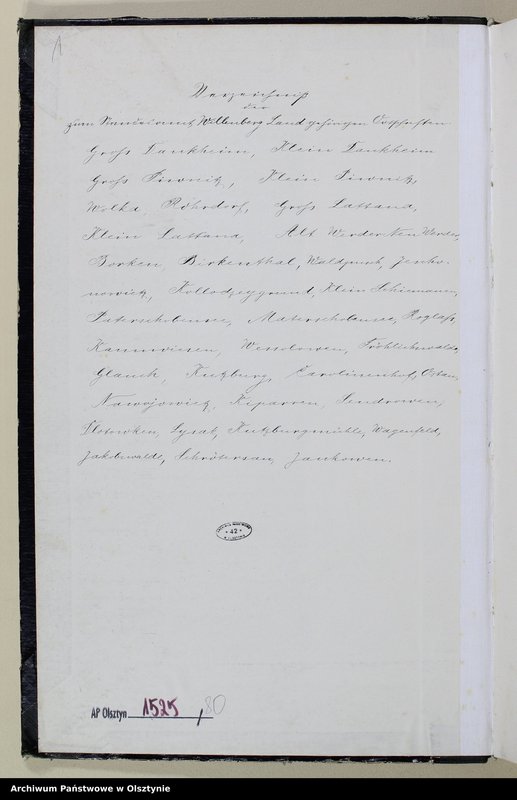 1
Verzeichniß
der
zum Standesamt Willenberg Land gehörigen Ortschaften.
Groß Lankheim, Klein Lankheim
Groß Piwnitz, Klein Piwnitz,
Wolka, Röhrdorf, Groß Lattana,
Klein Lattana, Alt Werder, Neu Werder,
Borken, Birkenthal, Waldpusch, Jesko-
nowitz, Kollodzeygrund, Klein Schiemanen,
Paterschobensee, Materschobensee, Roglaß,
Kannwiesen, Wessolowen, Fröhlichswalde,
Glauch, Kutzburg, Carolinenhof,
Nawojowitz, Kiparren, Sendrowen,
Plotnoken, Lysak, Kutzburgmühle, Wagenfeld,
Jakobswalde, Schrötersau, Jankowen.
* 42 *
AP Olsztyn 1525 / 80
Archiwum Państwowe w Olsztynie